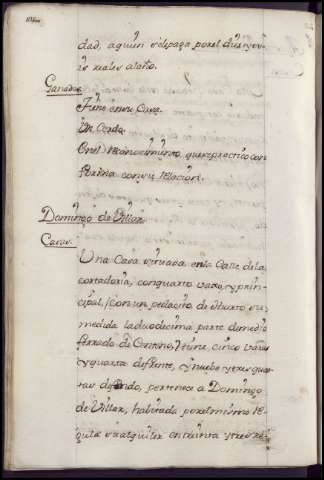 dad, a quien se le paga por el dueño
reales al año.
Ganados
Tiene en su Casa
Un Cerdo.
En el Reconocimiento, que se practicó con
forma con su Relacion.
Domingo de Villar
Casas.
Una Casa situada en la Calle de la
cortaduria, con quarto vajo, y prin-
cipal, (con un pedacito de Huerto su
medida la duodecima parte de medio
ferrado de Centeno,) tiene cinco varas
y quarta de frente, y nuebe y tres quar-
tas de fondo, pertenece a Domingo
de Villar, habitada por el mismo re-
gula su alquiler en treinta y tres rs